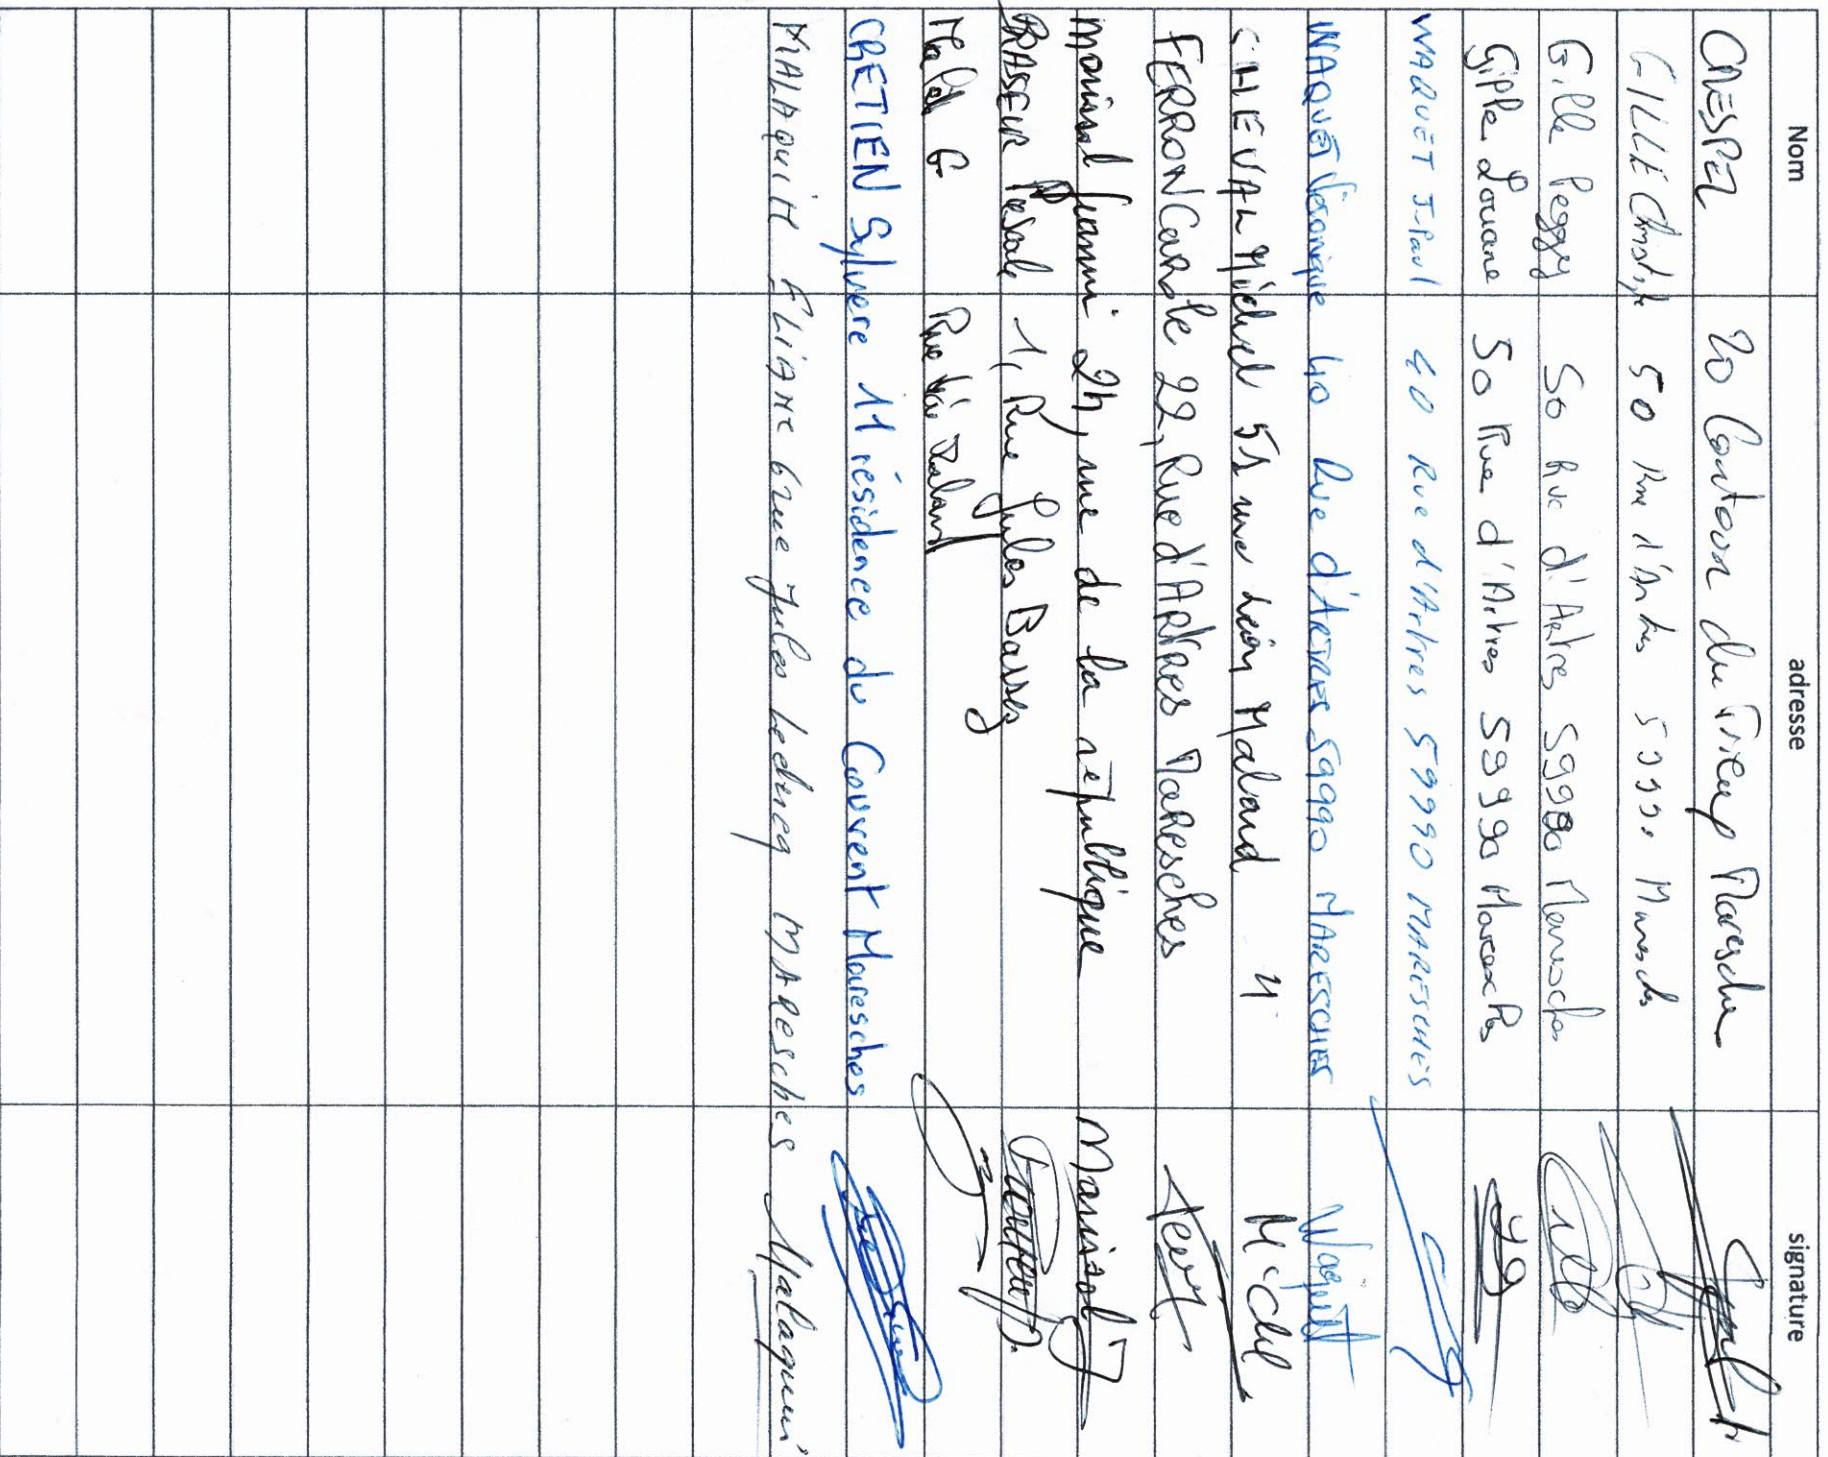 Nom adresse signature
CRESPEL 20 Contour du Trieux Maresches
GILLE Christophe 50 Rue d'Artres 59990 Maresches
Gille Peggy 50 Rue d'Artres 59990 Maresches Gille
Gille Louane 50 Rue d'Artres 59990 Maresches
WAQUET J-Paul 40 Rue d'Artres 59990 MARESCHES
WAQUET Véronique 40 Rue d'ARTRES 59990 MARESCHES Waquet
CHEVAL Michel 51 rue Léon Malaud Michel
FERRON Carole 22, Rue d'ARtres MaResches
24, rue de la république
BRASEUR Pascale 1, Rue Jules Basses
G Rue
CRETIEN Sylvere 11 résidence du Couvent Maresches
MALAQUIN ELIANE 6 rue Jules MARESCHES Malaquin